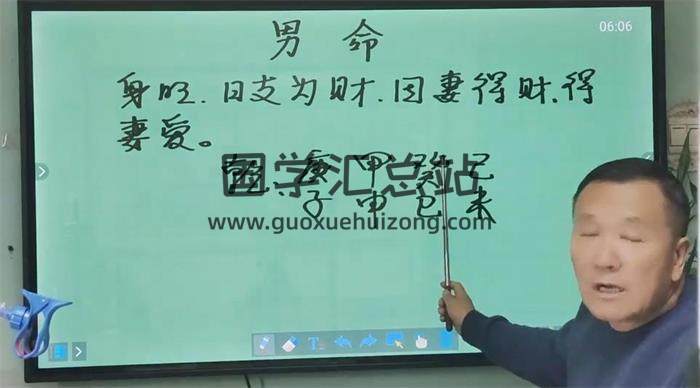 06:06
男 命
身旺.日支为财.因妻得财.得
妻爱。
乾: 庚 甲 癸 己
子 申 巳 未
国学汇总站
www.guoxuehuizong.com